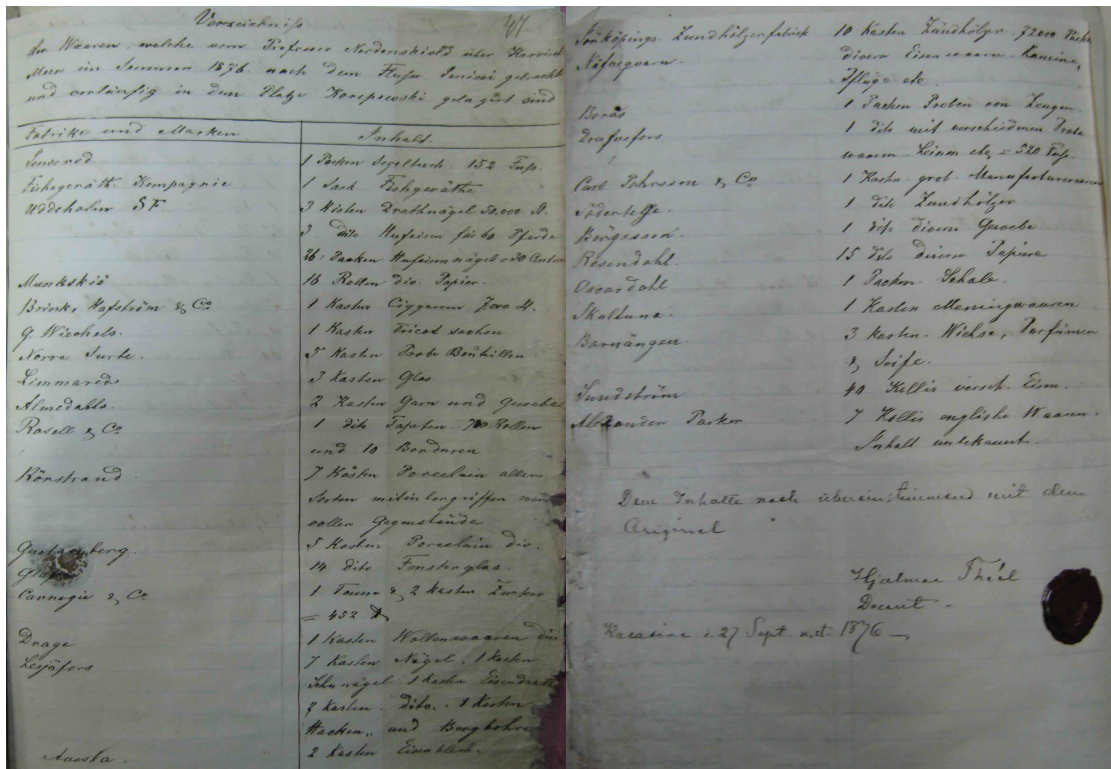 Verzeichniss 47
der Waaren, welche vom Professor Nordenskiold über Karrisch
Meer im Sommer 1876 nach dem Fluss Jenisei gebracht
und vorläufig in dem Platze Korepowski gelagert sind
Fabrike und Marken Inhalt
1 Packen Segeltuch 152 Fuss.
Fishgeräth Kompagnie 1 Sack Fishgeräthe
Uddeholm SF 3 Kisten Drathnägel 50.000 St.
3 dito Hufeisen für 60 Pferde
26 Packen Hufeisennägel = 30 Centner
Munksjö 16 Rollen div. Papier.
Brinck, Hafström & Co 1 Kasten Ciggarren 7000 St.
G. Wiechels. 1 Kasten Tricot sachen
Norra Surte. 5 Kasten Probe Bouteillen
Limmareds 3 Kasten Glas
Almedahls. 2 Kasten Garn und Gewebe
Rosell & Co 1 dito Tapeten 70 Rollen
und 10 Borduren
Rörstrand 7 Kästen Porcelain aller
Sorten miteinbegriffen
voller Gegenstände
Gustavsberg. 5 Kasten Porcelain div.
14 dito Fensterglas
Carnegie & Co 1 Tonne & 2 Kasten Zucker
= 452
Drage 1 Kasten Wollenwaaren div
Lesjöfors 7 Kasten Nägel, 1 Kasten
1 Kasten Eisendraht
7 Kasten dito. 1 Kasten
Hacken,, und Bergbohre
Avesta. 2 Kasten Eisenblech.
Jönköpings Zundhölzerfabrick 10 Kasten Zündhölzer 72000
Näfveqvarn. divern Eisenwaaren Kamine,
Pflüge etc
Borås 1 Packen Proben von Zeugen
1 dito mit verschiedenen
waaren Leinen etc = 520 Fuss
Carl Pehrsson & Co 1 Kasten grob. Manufacturwaaren
Södertelge. 1 dito Zundhölzer
Börgessen. 1 dito divern Gewebe
Rosendahl. 15 dito divern Papiere
Oscardahl 1 Packen Schale.
Skultuna. 1 Kasten Messingwaaren
Barnängen. 3 Kasten Wichse, Parfümen
& Seife.
Sundström 40 Kollis versch. Eisen.
Alexander Parker 7 Kollis englishe Waaren
Inhalt unbekannt.
Dem Inhalte nach übereinstimmend mit dem
Original
Hjalmar Théel
Docent
d. 27 Sept. n. st. 1876